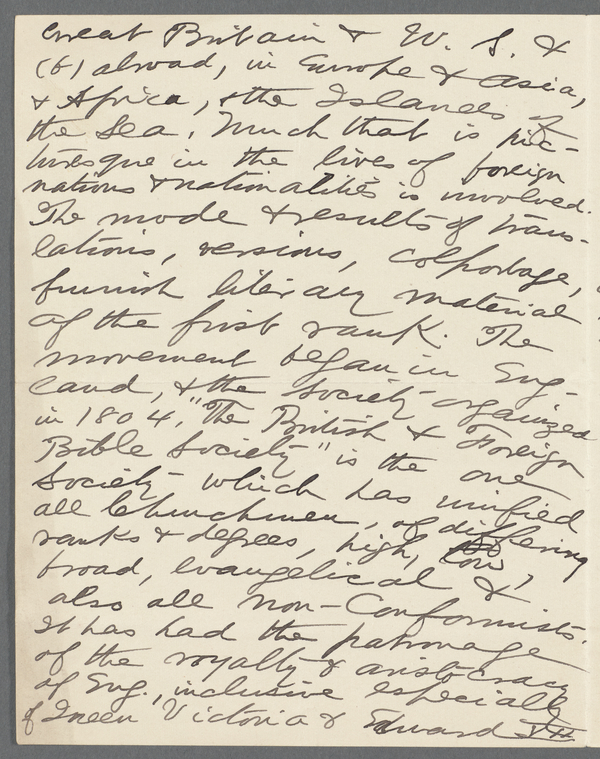 Great Britain & W. S. &
(6) abroad, in Europe & Asia,
& Africa, & the Islands of
the Sea. Much that is pic-
turesque in the lives of foreign
nations & nationalities is involved.
The mode & results of trans-
lations, versions, colportage,
furnish literary material
of the first rank. The
movement began in Eng-
land, & the society organized
in 1804, "The British & Foreign
Bible Society" is the one
society which has unified
all Churchmen, of differing
ranks & degrees, high, low,
broad, evangelical &
also all non-Conformists.
It has had the patronage
of the royalty & aristocracy
of Eng., inclusive especially
of Queen Victoria & Edward VII